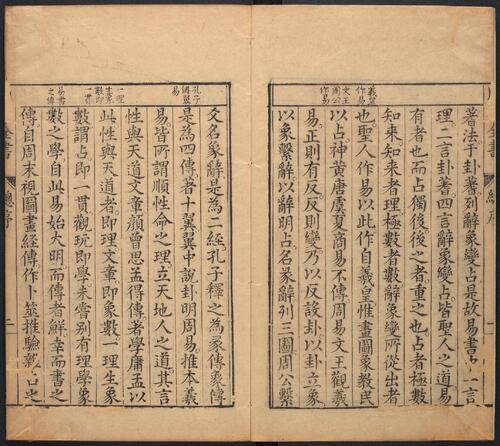 羲皇
作易
文王
周公
作易
蓍法于卦蓍列辭象變占是故易書占一言
理二言卦蓍四言辭象變占皆聖人之道易
有者也而占獨後後之者重之也占者極數
知來知來者理極數者數辭象變所從出者
也聖人作易以此作自羲皇惟畫圖象教民
以占神黄唐虞夏商易不傳周易文王觀羲
易正則有反反則變乃以反設卦以卦立象
以象繫辭以辭明占名彖辭列三圖周公繫
總序
二
孔子
傳翼
易
一理
生象
數即
一貫
易書
之傳
爻名象辭是為二經孔子釋之為彖傳象傳
是為四傳者十翼翼中說卦明周易推本羲
易皆所謂順性命之理立天地人之道其言
性與天道文章顔曾思孟得傳者學庸孟以
此性與天道者即理文章即象數一理生象
數謂占即一貫觀玩即學未嘗别有理學象
數之學自此易始大明而傳者鮮幸而書之
傳自周末視圖畫經傳作卜筮推驗雜占之
全書
總序
二